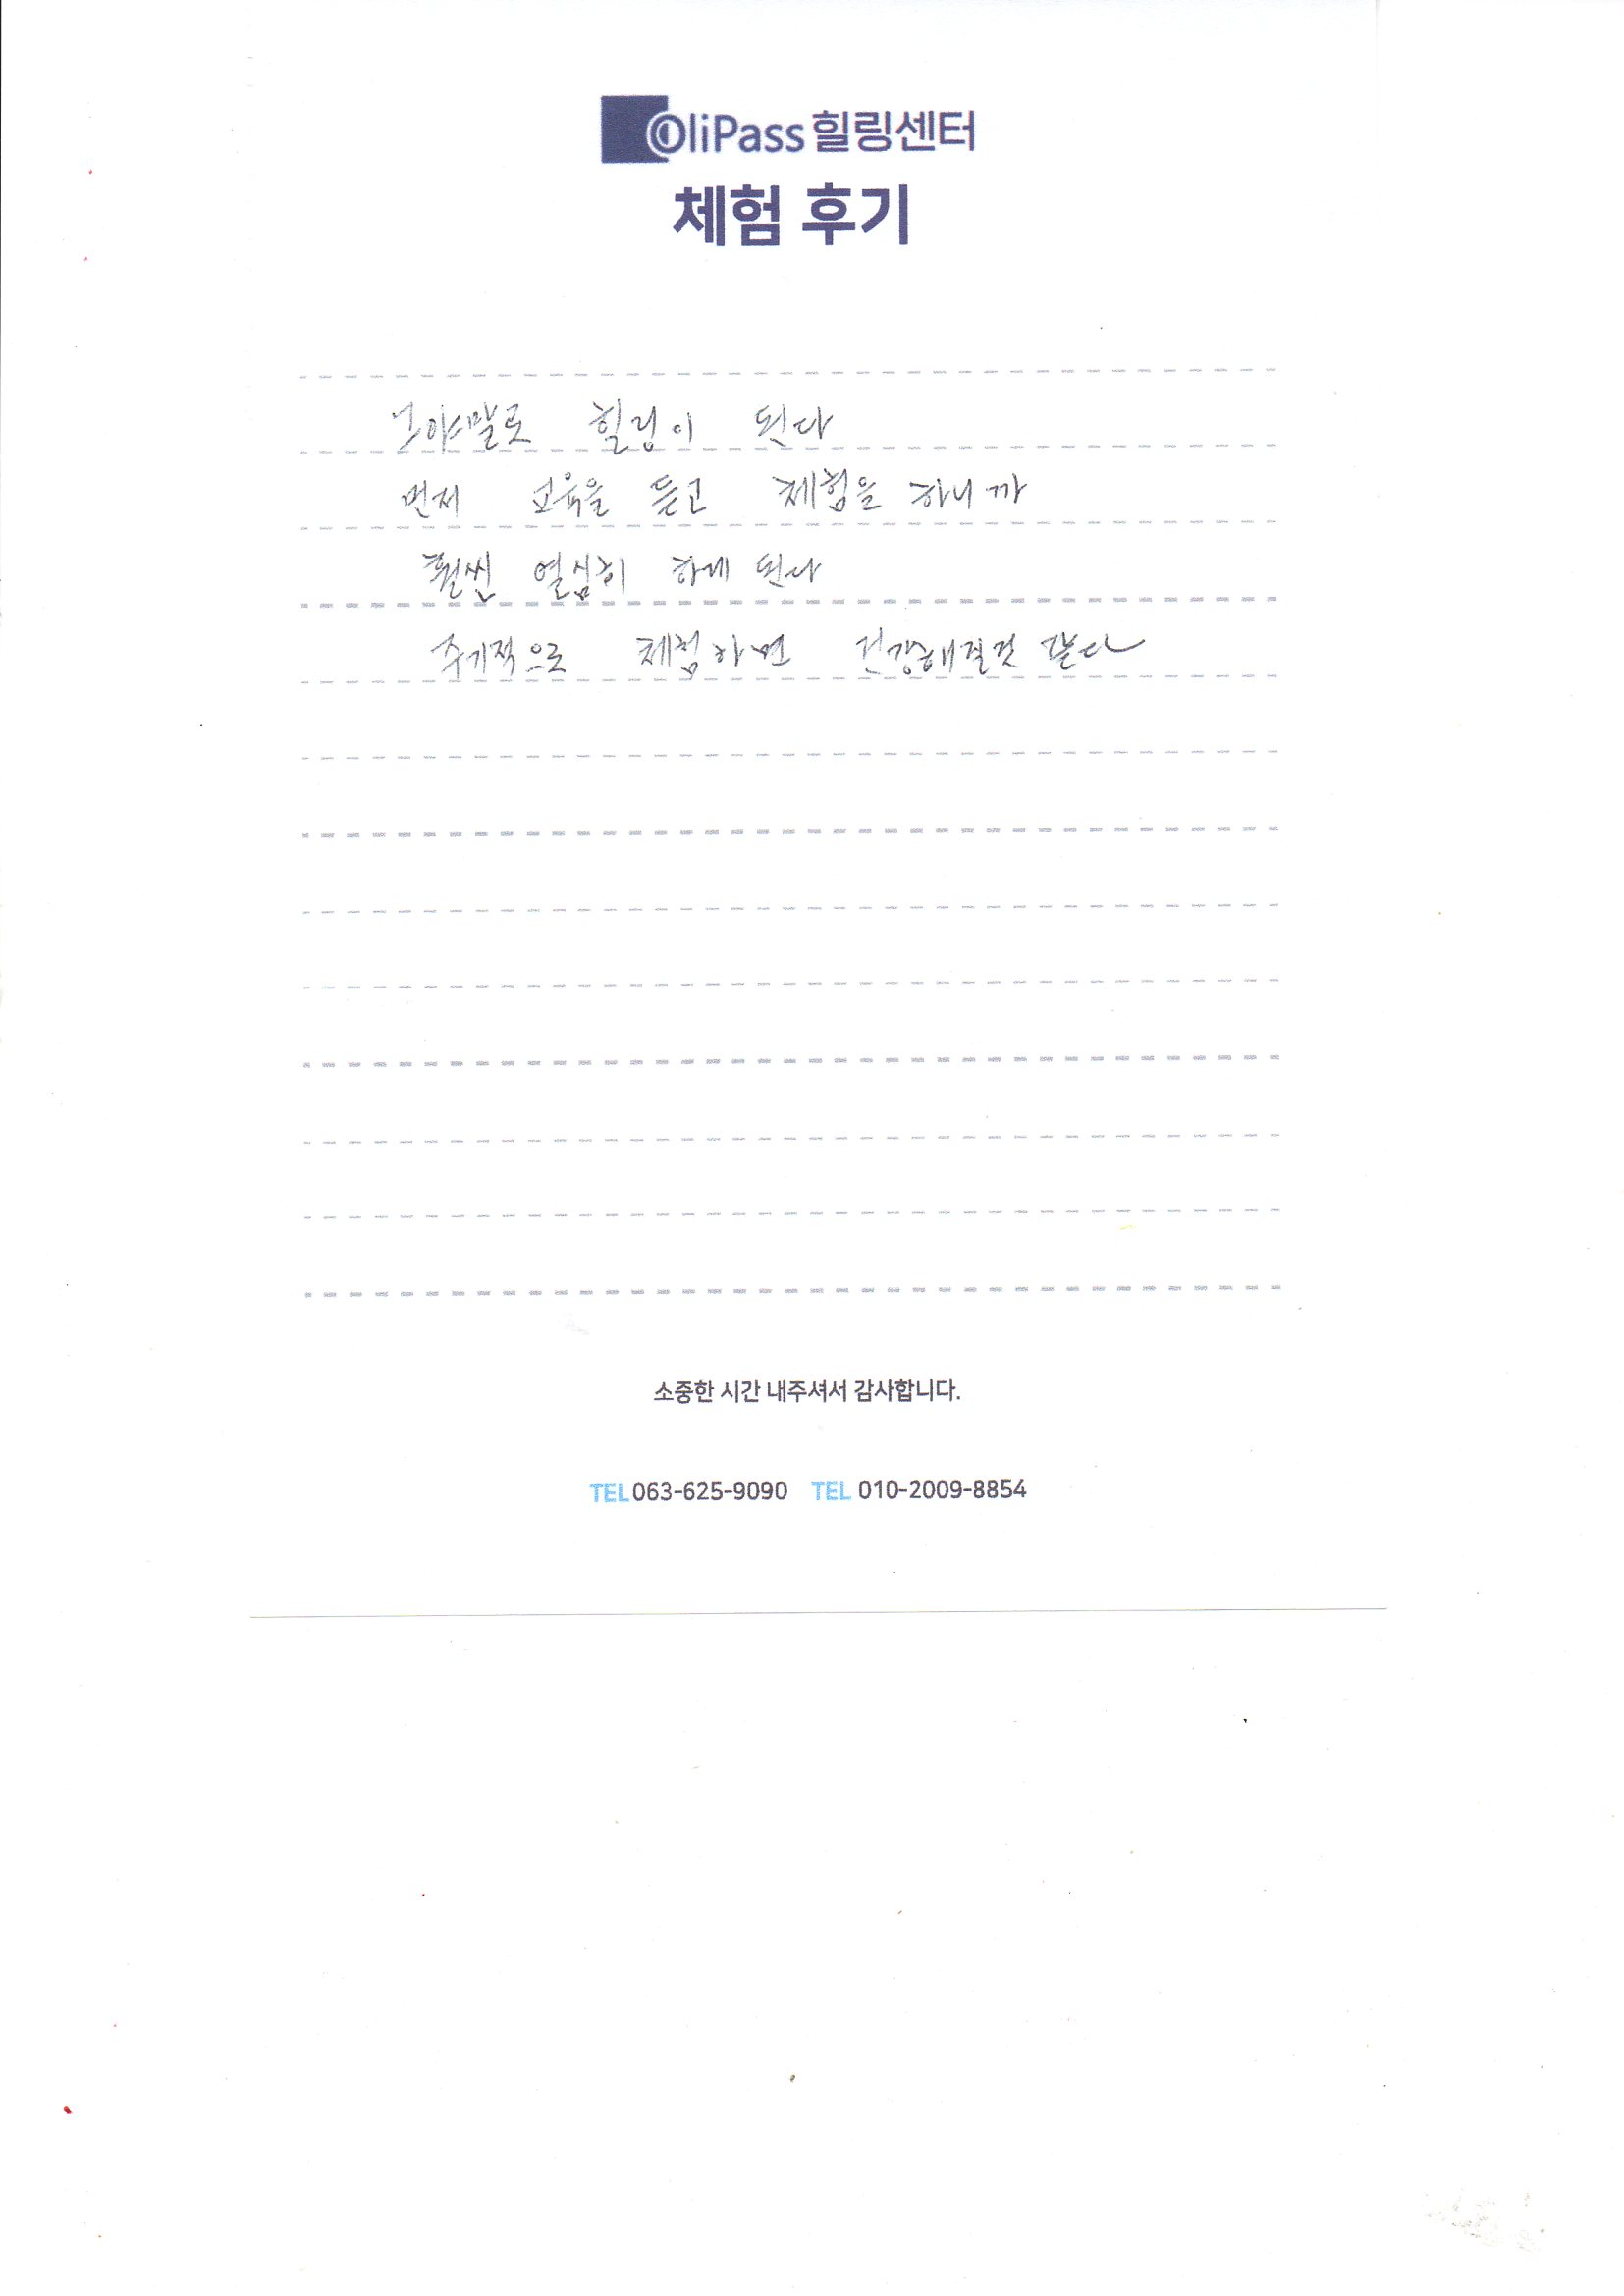 OliPass 힐링센터
체험 후기
그야말로 힐링이 된다
먼저 교육을 듣고 체험을 하니까
훨씬 열심히 하게 된다
주기적으로 체험하면 건강해질것 같다
소중한 시간 내주셔서 감사합니다.
TEL 063-625-9090 TEL 010-2009-8854